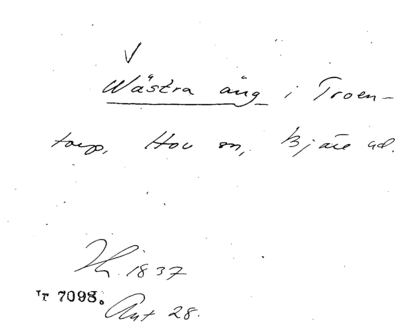 V
Wästra äng i Troen-
torp, Hov sn, Bjäre hd.
Th. 1837
Nr 7098.
Ant 28.